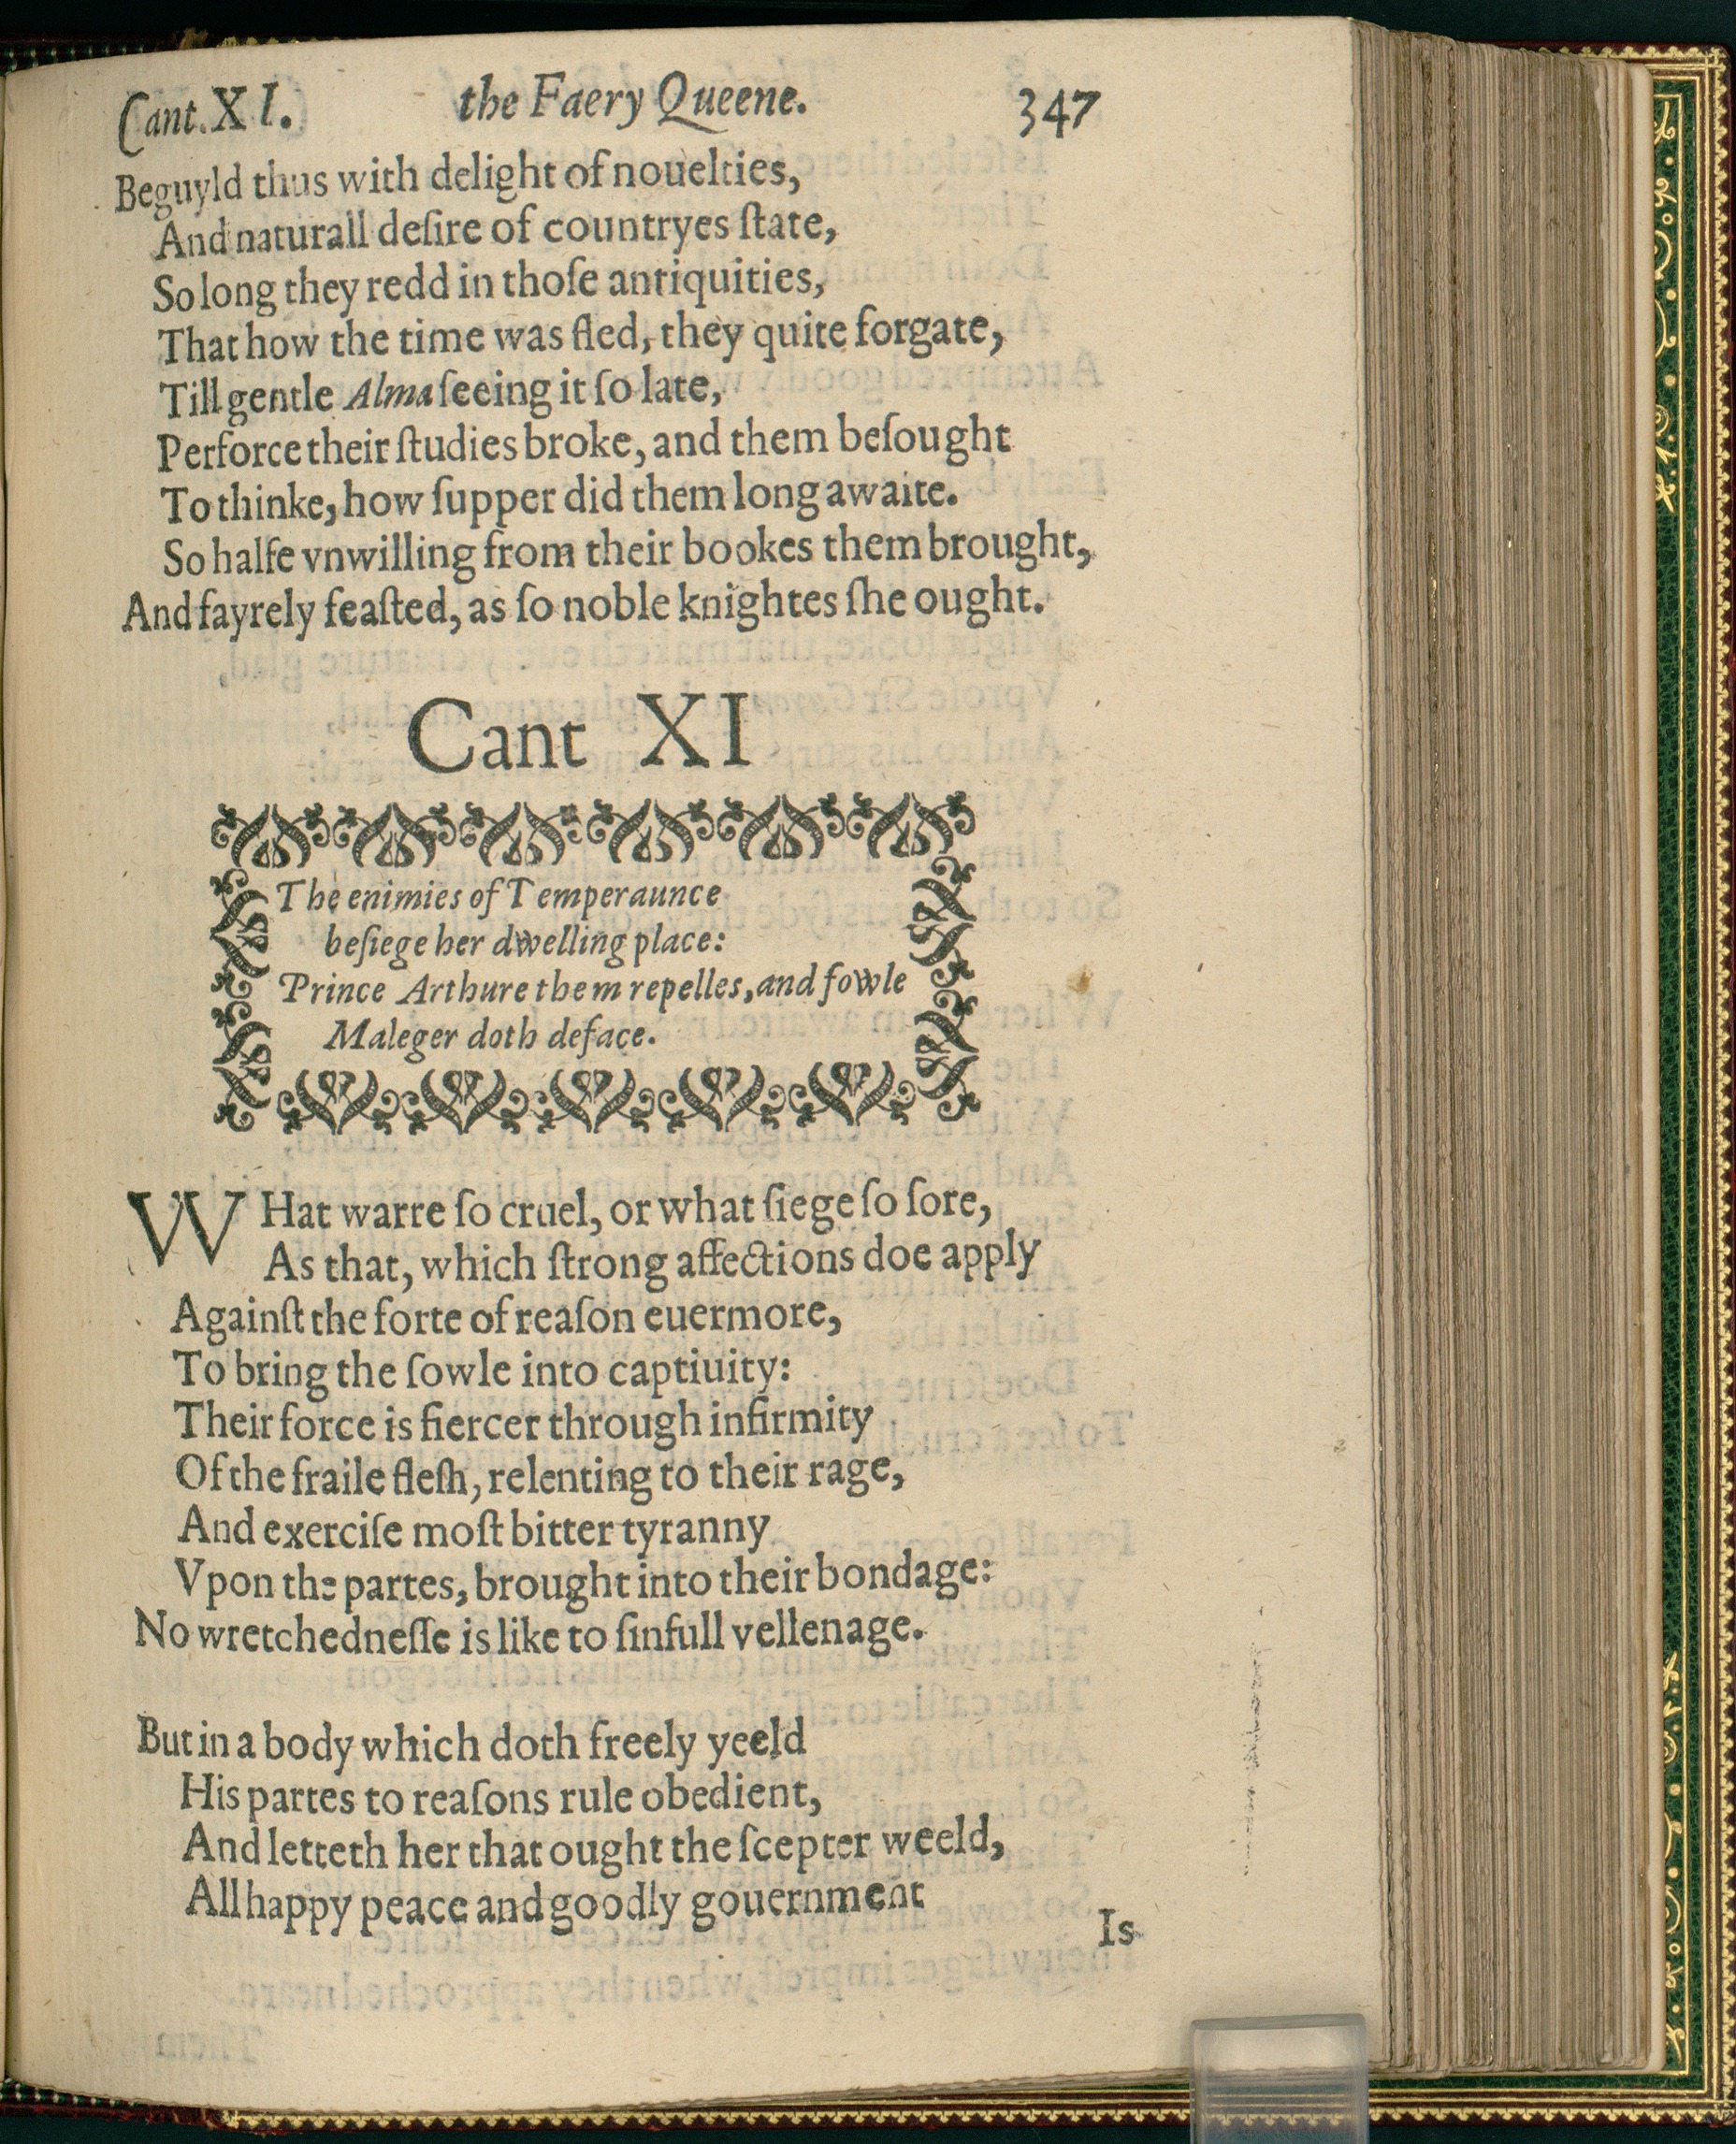 Cant. XI. the Faery Queene. 347
Beguyld thus with delight of nouelties,
And naturall deſire of countryes ſtate,
So long they redd in thoſe antiquities,
That how the time was fled, they quite forgate,
Till gentle Alma ſeeing it ſo late,
Perforce their ſtudies broke, and them beſought
To thinke, how ſupper did them long awaite.
So halfe vnwilling from their bookes them brought,
And fayrely feaſted, as ſo noble knightes ſhe ought.
Cant XI
The enimies of Temperaunce
beſiege her dwelling place:
Prince Arthure them repelles, and fowle
Maleger doth deface.
WHat warre ſo cruel, or what ſiege ſo ſore,
As that, which ſtrong affections doe apply
Againſt the forte of reaſon euermore,
To bring the ſowle into captiuity:
Their force is fiercer through infirmity
Of the fraile fleſh, relenting to their rage,
And exerciſe moſt bitter tyranny
Vpon the partes, brought into their bondage:
No wretchedneſſe is like to ſinfull vellenage.
But in a body which doth freely yeeld
His partes to reaſons rule obedient,
And letteth her that ought the ſcepter weeld,
All happy peace and goodly gouernment
Is